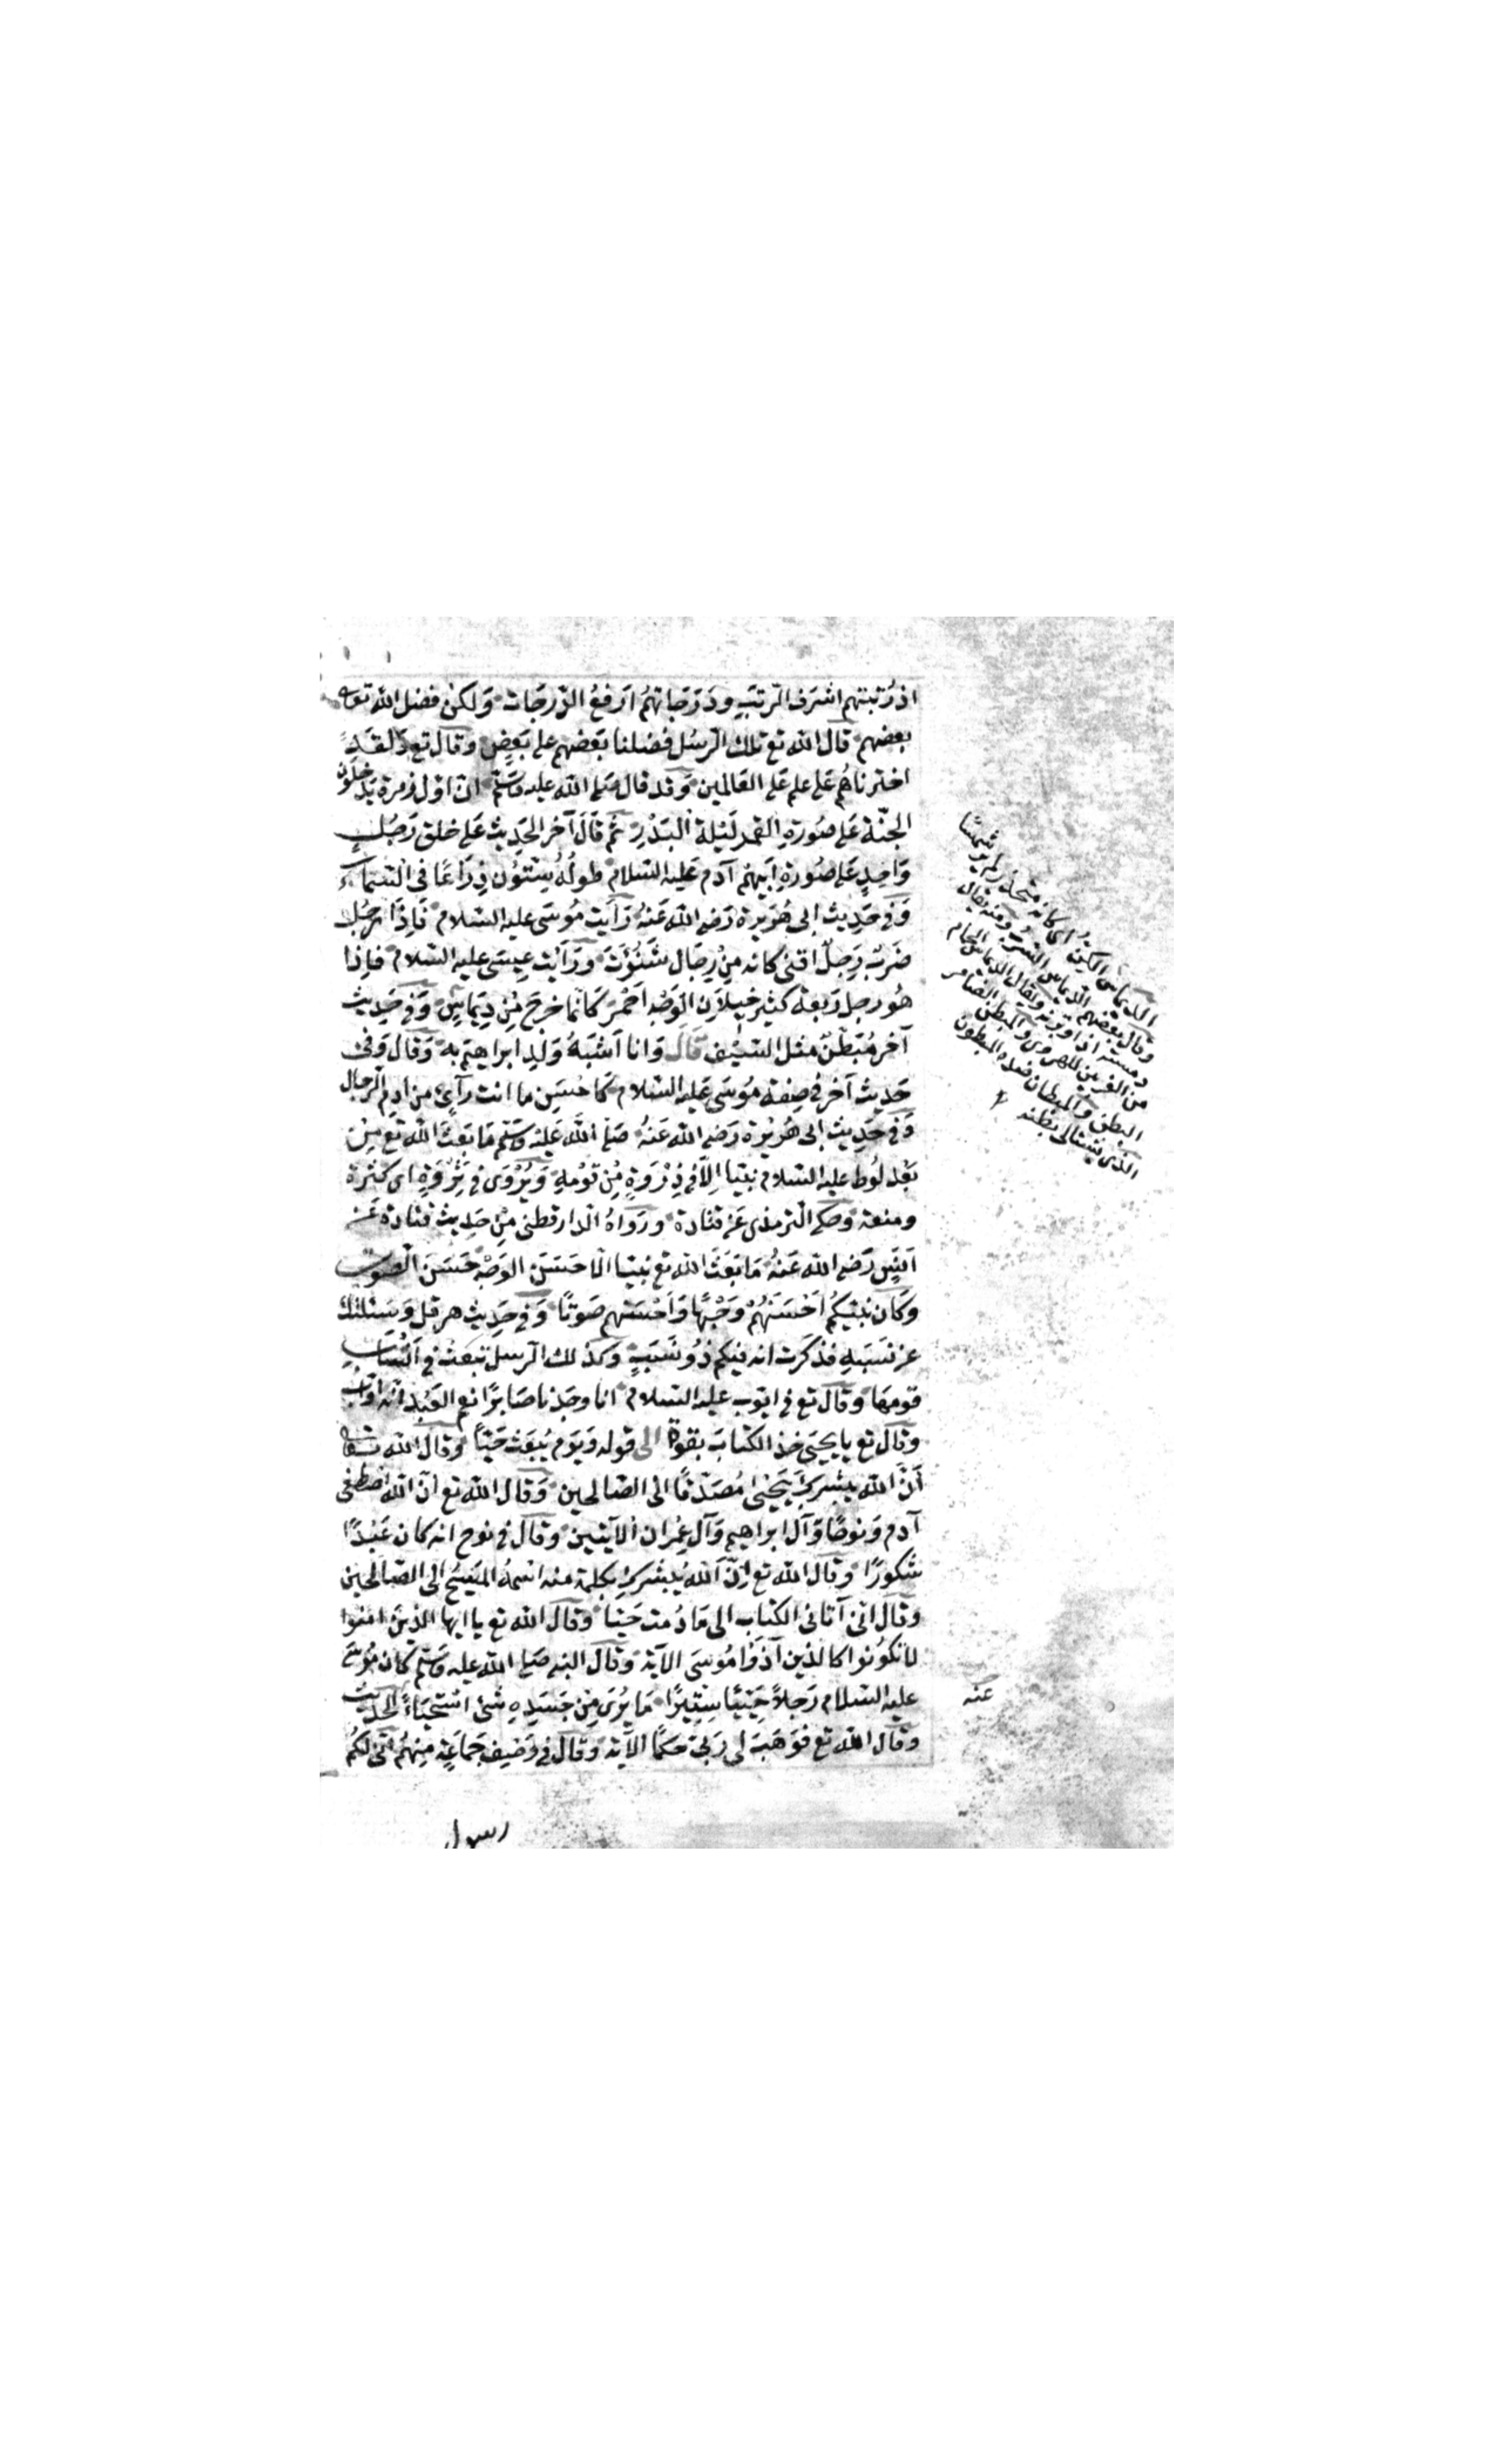 اذ رُتبتهم اشرَف الرّتبِ ودَرَجَاتهمُ ارَفعُ الدّرجَات وَلكن فضل الله تعه
بعضهم قال الله تع تلك الرسُل فضلنا بَعضهم على بَعضٍ وقال تع ولقد
اخترناهُم عَلى علم عَلى العَالمين وَقد قال صَلى الله عليه وسَلّم ان اوّل زمرة يَدخلون
الجنّة عَلى صُورةِ القمر لَيْلة البَدْرِ ثم قَال آخر الحَدِيث عَلى خلق رَجُلٍ
وَاحِدٍ عَلى صُورةِ ابَيهمُ آدم عَليه السّلام طولُهُ سِتّوُن ذِرَاعًا في السّمَاء
وَفي حَدِيث ابى هُرَيرة رَضى الله عَنهُ رَأيت مُوسَى عليه السّلام فَاِذَا رجُل
ضَربٌ رَجِلٌ اقنى كانه مِنْ رِجَال شَنُؤت وَرَأيْت عِيسَى عليه السّلام فاِذا
هُو رجل رَبعَة كثير خيلاَن الوَجْه اَحْمَر كَانّما خرجَ مِنْ دِيمَاسٍ وَفي حَدِيث
آخر مُبَطّنٌ مثل السّيف قالَ وَانا اشَبَهُ وَلَدِ ابراهيم به وَقال وَفى
حَدِيث آخر فى صِفة مُوسَى عَليه السّلام كَاحسَن ما انت رآىٍ من ادم الرجال
وَفي حَدِيث ابى هُرَيْرة رَضى الله عَنهُ صَلى الله عَليْه وسَلّم مَا بَعثَ الله تع مِن
بَعْد لُوط عليه السّلام نبيّا اِلاّ في ذِرْوَةٍ مِنْ قوْمهِ وَيُرْوَى في ثرْوَةٍ اى كثرة
ومنعة وحكى الترمذى عَن قتادة ورَوَاهُ الدارقطنى مِنْ حَدِيث قتادة عَن
انَسٍ رَضى الله عَنهُ مَا بَعَثَ الله تع نبيّا الاّ حَسَنَ الوَجْه حَسَنَ الصّوت
وَكَان نبيّكُم اَحْسَنَهُمْ وَجْهًا وَاَحْسَنهم صَوتًا وَفي حَدِيث هرقل وَسَئلتك
عن نسَبهِ فذكَرت انه فيكم ذُو نسَبٍ وكذلك الرسل تبعَث في انْسَابِ
قومهَا وقال تع فى ايّوب عليه السّلام انا وجَدناه صَابرًا نع العَبْد انه اوّاب
وقال تع يا يحيَى خذ الكتابَ بقوة الى قوله وَيَوَم يُبعَث حَيّاً وقال الله تعه
أنّ الله يبشركَ بيَحْيٰى مُصَدّقًا الى الصّالحين وَقال الله تع انّ الله اصطفى
آدم وَنوحًا وَآل ابراهيم وَآل عِمران الآيتين وقال في نوح انه كان عَبْدًا
شكورًا وقال الله تع اِنّ الله يُبشركِ بكلمة منه اسْمهُ المسَيح الى الصّالحين
وقال انى آتانى الكتاب الى مَا دُمت حَيّا وقال الله تع يا ايها الذينَ امنوا
لا تكونُوا كالذين آذَوْا مُوسَى الآية وَقال النبى صَلى الله عليه وَسَلم كان مُوسَى
عليه السّلام رَجلاً حَيِيًّا سِتِيرًا مَا يُرَى مِنْ جَسَدِهِ شئ اسْتحيَاءً الحَديث
وقال الله تع فوَهَبَ لى رَبى حكمًا الآية وَقال في وَصْف جَماعَةٍ مِنهُم انّى لكم
الديماس الكنّ اى كانه مخدّر لم ير شمسًا
وقال بعضهم الديماس السّرب ومنه يقال
دمسته اذا قبرته ويقال الديماس الحمام
من الغريبين للهروى والمبطن الضامر
البطن والمبطان ضده المبطون
الذى يشتكى بطنه
عنه
رسول